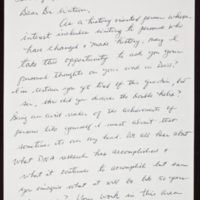 Dear Dr. Watson,
As a history oriented person whose
interest includes writing to persons who
have changed & made history, may I
take this opportunity to ask you your
personal thoughts on your work in DNA?
I'm certain you get tired of this question, but
sir, how did you discover the double helix?
Being an avid reader of the achievements of
persons like yourself I must admit that
sometimes it can my head. We all hear about
what DNA research has accomplished and
what it continues to accomplish but can
you imagine what it will be like 20 years
? Your work in this area